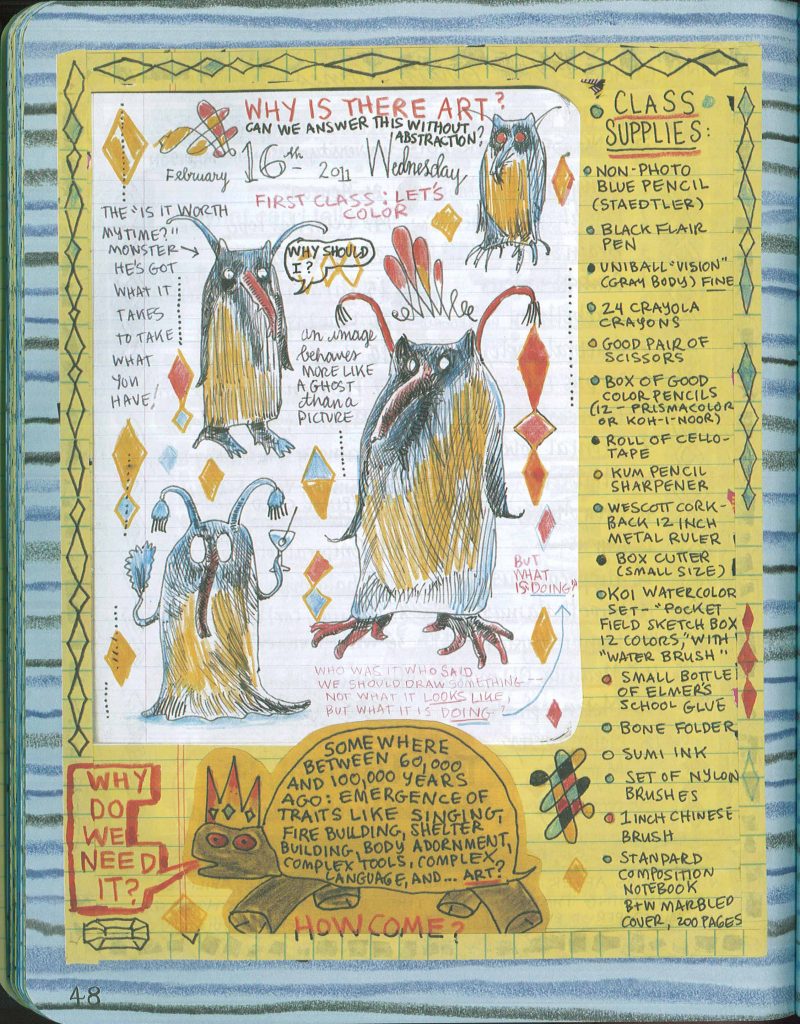 WHY IS THERE ART?
CAN WE ANSWER THIS WITHOUT
ABSTRACTION?
February 16th - 2011 Wednesday
FIRST CLASS: LET'S
COLOR
THE "IS IT WORTH
MY TIME?"
MONSTER
HE'S GOT
WHAT IT
TAKES
TO TAKE
WHAT
YOU
HAVE!
WHY SHOULD
I?
an image
behaves
MORE LIKE
A GHOST
than a
PICTURE
BUT
WHAT
IS "DOING"
WHO WAS IT WHO SAID
WE SHOULD DRAW SOMETHING --
NOT WHAT IT LOOKS LIKE,
BUT WHAT IT IS DOING?
CLASS
SUPPLIES:
NON-PHOTO
BLUE PENCIL
(STAEDTLER)
BLACK FLAIR
PEN
UNIBALL "VISION"
(GRAY BODY) FINE
24 CRAYOLA
CRAYONS
GOOD PAIR OF
SCISSORS
BOX OF GOOD
COLOR PENCILS
(12 - PRISMACOLOR
OR KOH-I-NOOR)
ROLL OF CELLO-
TAPE
KUM PENCIL
SHARPENER
WESCOTT CORK-
BACK 12 INCH
METAL RULER
BOX CUTTER
(SMALL SIZE)
KOI WATERCOLOR
SET - "POCKET
FIELD SKETCH BOX
12 COLORS," WITH
"WATER BRUSH"
SMALL BOTTLE
OF ELMER'S
SCHOOL GLUE
BONE FOLDER
SUMI INK
SET OF NYLON
BRUSHES
1 INCH CHINESE
BRUSH
STANDARD
COMPOSITION
NOTEBOOK
B+W MARBLED
COVER, 200 PAGES
WHY
DO
WE
NEED
IT?
SOMEWHERE
BETWEEN 60,000
AND 100,000 YEARS
AGO: EMERGENCE OF
TRAITS LIKE SINGING,
FIRE BUILDING, SHELTER
BUILDING, BODY ADORNMENT,
COMPLEX TOOLS, COMPLEX
LANGUAGE, AND... ART?
HOW COME?
48